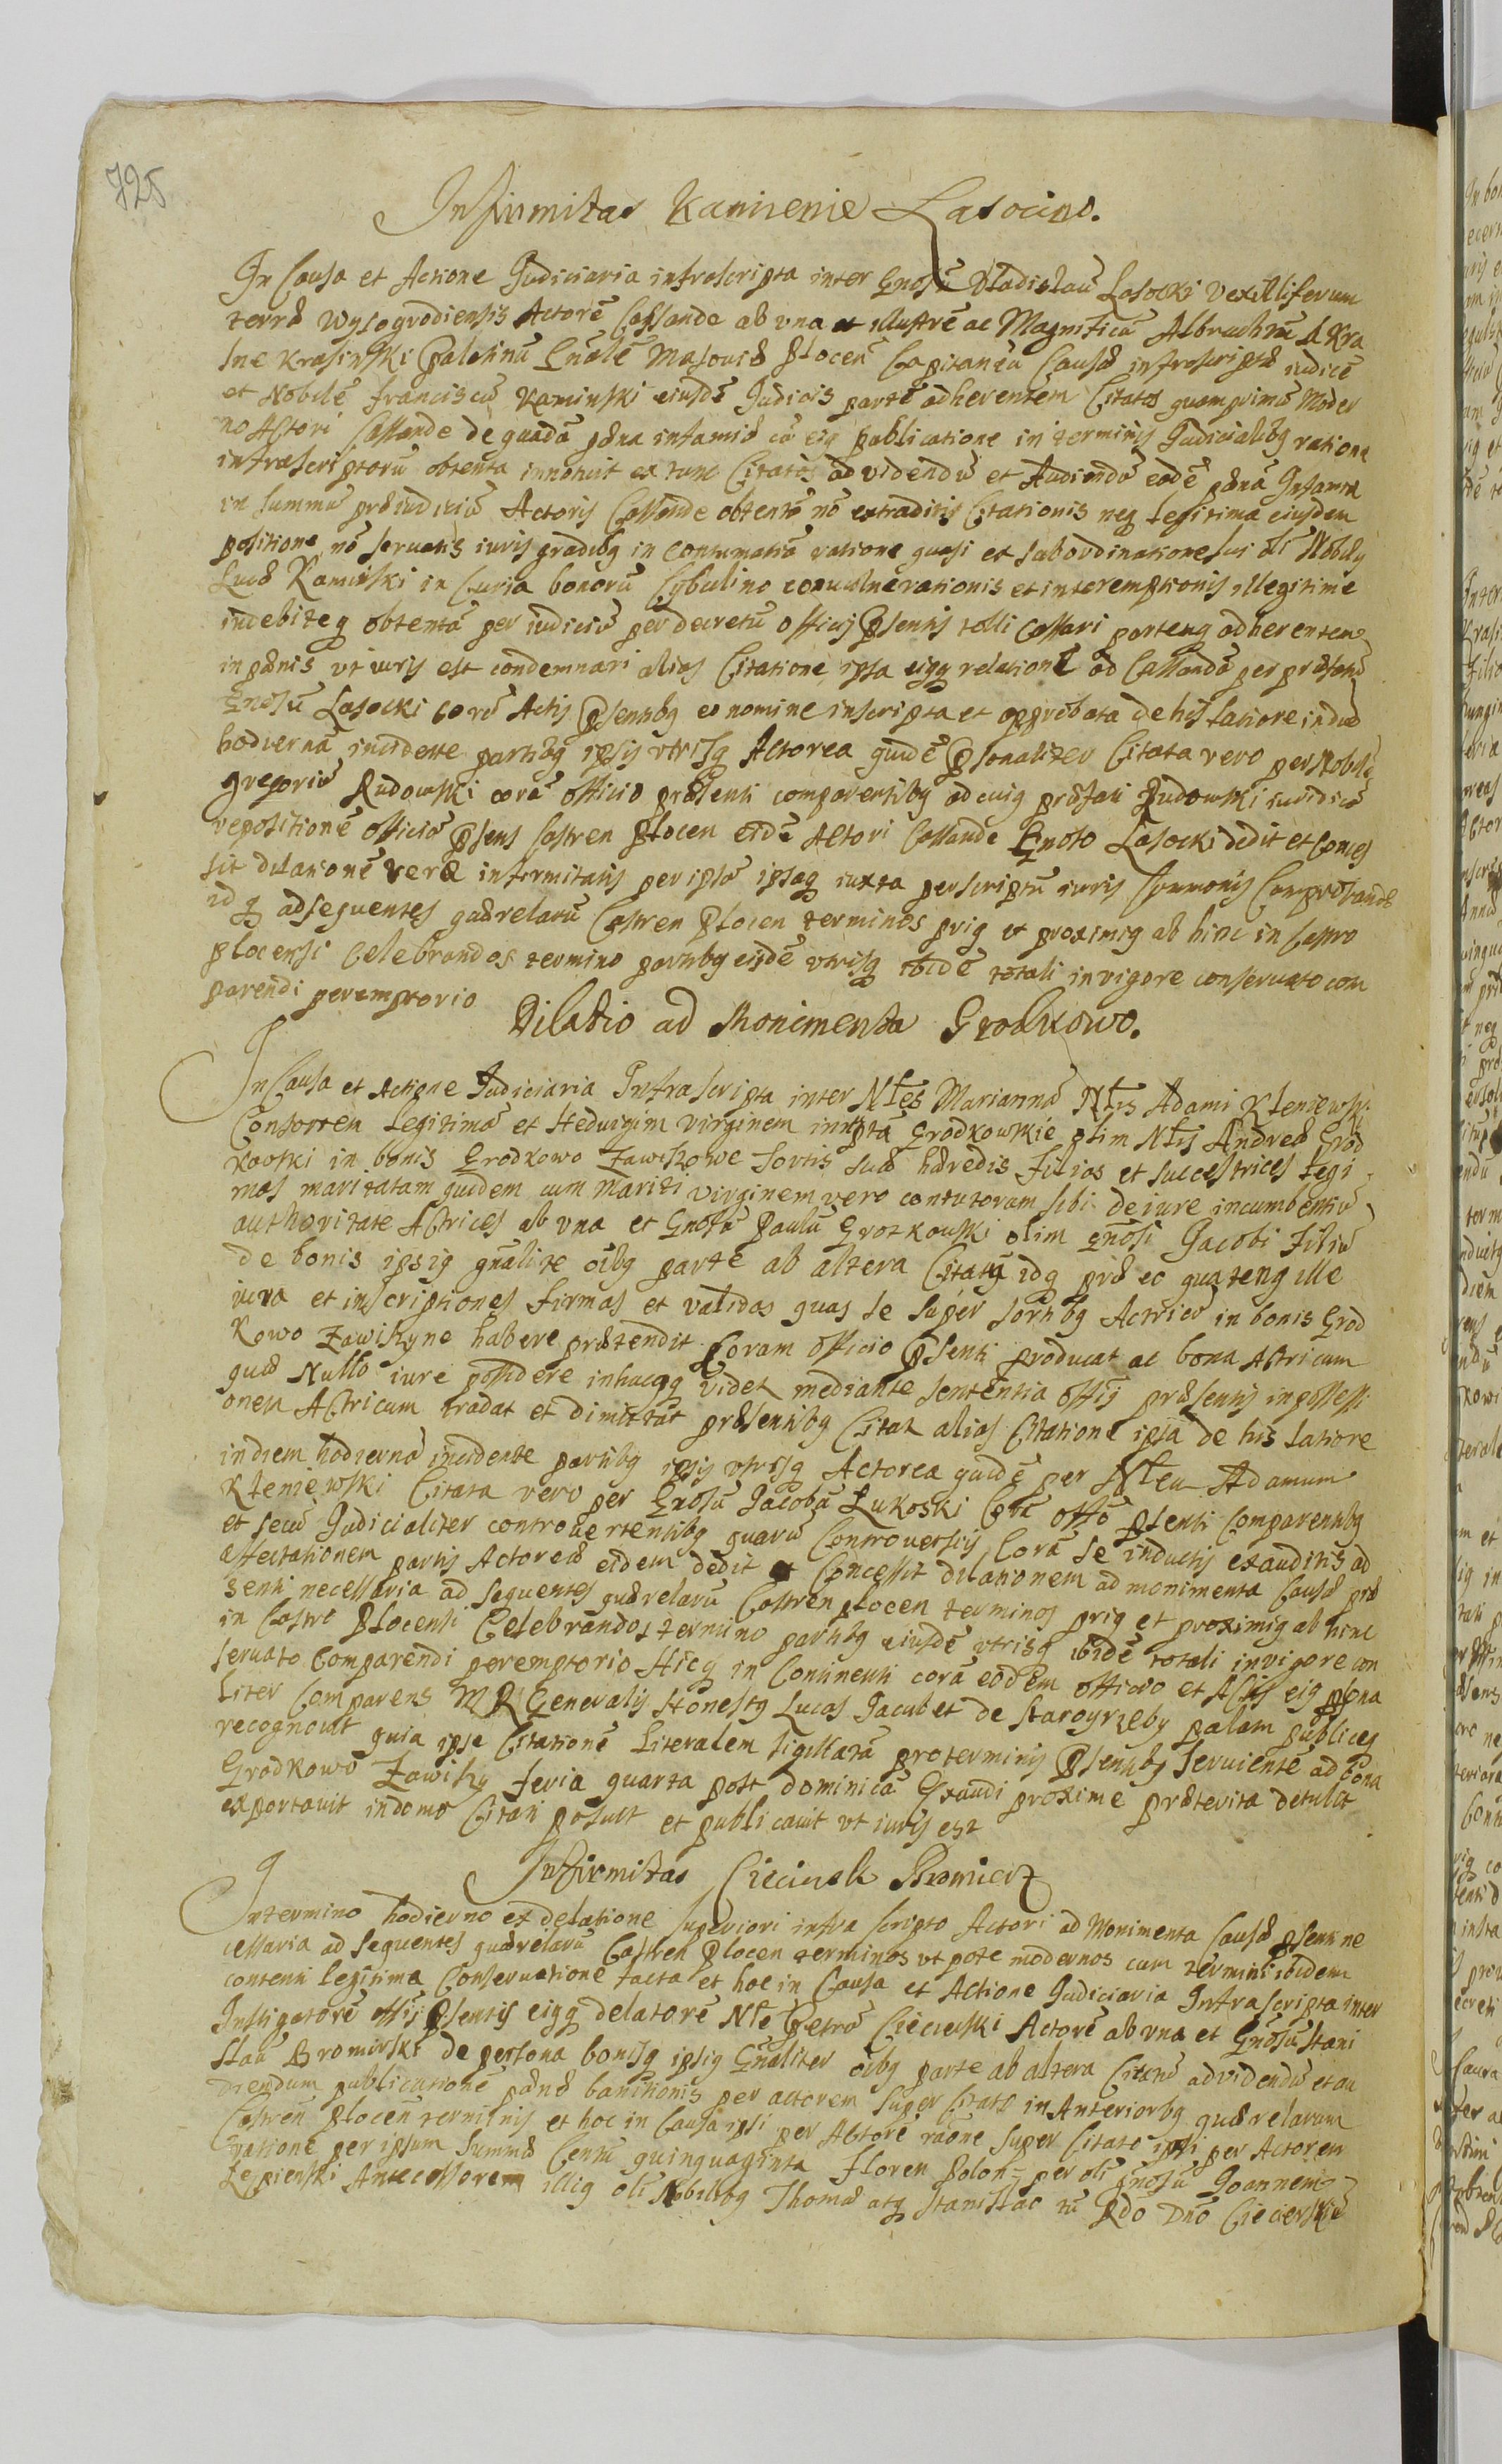 725
Infirmitas Kamienie Lasocino.
In Causa et Actione Judiciaria infrascripta inter Gnosũ Vladislaũ Lasocki Vexilliferum
terræ Wysogrodiensis Actorẽ Cassandæ ab vna et illustrẽ ac Magnificũ Albrachtũ A Kra
sne Krasinski Palatinũ Gnãlẽ Masoviæ Plocen̄ Capitaneũ Causæ infrascriptæ iudicẽ
et Nobilẽ Franciscũ Kaminski eiusdẽ Judicis partẽ adherentem Citatos quomprimũ Moder
no Actori Cassandæ de quadã pæna infamiæ cũ eiq publicatione in terminis Judicialibq ratione
infrascriptorũ obtenta innotuit ex tunc Citatos ad videndũ et Audiendũ eadẽ pænã Infamiæ
in summũ præiudiciũ Actoris Cassandæ obtentã nõ extraditis Citationis neq legitima eiusdem
positione nõ seruatis iuris gradibq in contumatiã ratione quasi ex subordinatione sui oli Nobilis
Lucæ Kaminski in Curia bonorũ Cybulino conuulnerationis et interemptionis illegitime
indebiteq obtentã per iudiciũ per decretũ officij Psentis tolli cassari partemq adherentem
in pænis vt iuris est condemnari alias Citatione ipsa eiqq relatione ad Cassandã per præfatũ
Gnosũ Lasocki corã Actis Psentibq eo nomine inscripta et approbata de his latiore in diẽ
hodiernã incidente partibq ipsis vtrisq Actorea quidẽ Psonaliter Citata vero per Nobilẽ
Gregoriũ Rudowski corã officio præsenti comparentibq ad cuiq præfati Rudowski iuridicã
repositionẽ officiũ Psens Castren Plocen eidẽ Actori Cassandæ Gnoso Lasocki dedit et Conces
sit dilationẽ veræ infirmitatis per ipsũ ipsaq iuxta perscriptũ iuris Communis Comprobandæ
id q ad sequentes quærelarũ Castren Plocen terminos priq et proximiq ab hinc in Castro
Plocensi Celebrandos termino partibq eisdẽ vtrisq ibidẽ totali in vigore conseruato com
parendi peremptorio
Dilatio ad Monimenta Grodkowo.
In Causa et Actione Judiciaria Infrascripta inter Ntes Mariannã Ntis Adami Kteniewski
Consortem legitimã et Heduigim virginem inuptã Grodkowskie olim Ntis Andreæ Grod
kowski in bonis Grodkowo Zawiszowe sortis suæ hæredis Filias et successtrices legi
mas maritatam quidem cum Mariti virginem vero contutorum sibi de iure incumbentiũ
authoritate Actrices ab vna et Gnosũ Paulũ Grotkowski olim Gnosi Jacobi Filiũ
de bonis ipsiq gnãlite oibq partẽ ab altera Citatũ idq præ eo quatenq ille
iura et inscriptiones firmas et validas quas se super sortibq Actricũ in bonis Grod
kowo Zawiszyne habere prætendit coram officio Psenti producat ac bona Actricum
quæ Nullo iure possidere in hucqq videt mediante sententia offij præsentis in possessi
onem Actricum tradat et dimittat præsentibq Citat alias Citatione ipsa de his latiore
in diem hodiernã incidente partibq ipsis vtrisq Actorea quidẽ per Nteu Adamum
Kteniewski Citata vero per Gnosũ Jacobũ Lukoski Corã offõ Psenti Comparentibq
et secũ Judicialiter controuertentibq quarũ Controuersijs Corã se inductis exauditis ad
affectationem partis Actoreæ eidem dedit et Concessit dilationem ad monimenta Causæ præ
senti necessaria ad sequentes quærelarũ Castren Plocen terminos priq et proximiq ab hinc
in Castro Plocensi Celebrandos termino partibq eiusdẽ vtrisq ibidẽ totali in vigore con
seruato Comparendi peremptorio Hicq in Continenti corã eodem officio et Actis eiq psona
liter Comparens MR Generalis Honestq Lucas Jacubet de Starogrzeby palam publiceq
recognouit quia ipse Citationẽ Literalem sigillatã pro terminis Psentibq seruientẽ ad bona
Grodkowo Zawiszy feria quarta post dominicã Exaudi proxime præterita detulit
exportauit in domo Citati posuit et publicauit vt iuris est
Infirmitas Cieciersk Bromierz
In termino hodierno ex delatione superiori infra scripto Actori ad Monimenta Causæ psenti ne
cessaria ad sequentes quærelarũ Castren Plocen terminos vt pote modernos cum termini ibidem
contenti legitima Conseruatione facta et hoc in Causa et Actione Judiciaria Infrascripta inter
Instigatorẽ offij Psentis eiqq delatorẽ Ntẽ Petrũ Ciecierski Actorẽ ab vna et Gnosũ Stani
slaũ Bromirski de persona bonisq ipsiq Gnaliter oibq parte ab altera Citatũ ad videndũ et au
diendum publicationẽ pænæ banitionis per actorem super Citato in Anteriorbq quærelarum
Castren̄ Plocen̄ terminis et hoc in Causa ipsi per Actorẽ rãone super Citato ipsi per Actorem
ratione per ipsum summæ Centũ quinquaginta Floren Polon= per oli Gnosũ Joannem
Lepienski Antecessorem illiq oli Nobilibq Thomæ atq Stanislao tũ Rdo Dno Ciecierskiẽ